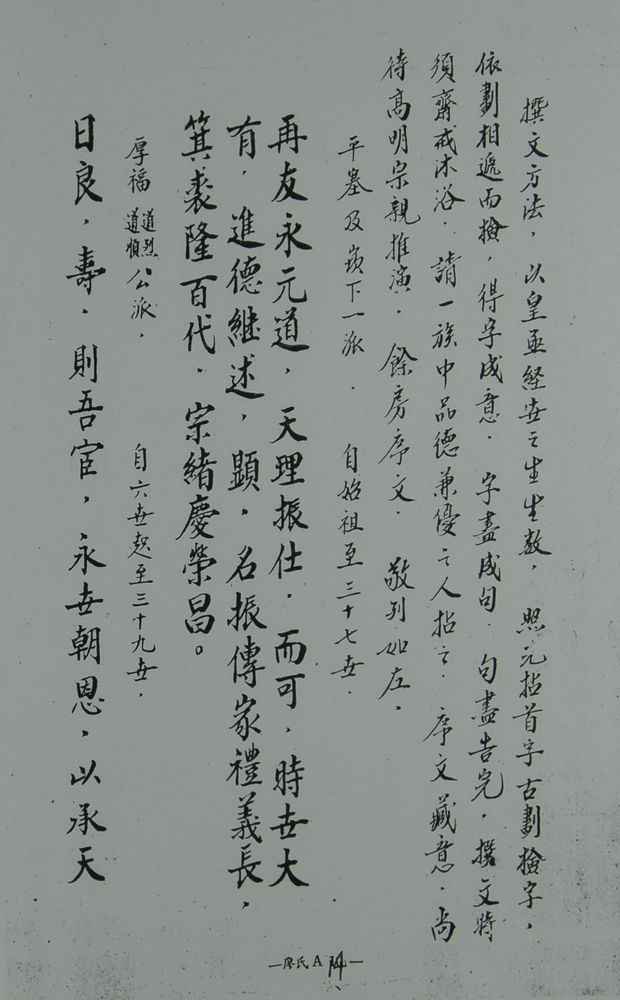 撰文方法，以皇亟経世之生生数，照元拈首字古劃撿字，
依劃相遞而撿，得字成意．字盡成句．句盡告完，撰文時
須齋戒沐浴．請一族中品德兼優之人拈之．序文藏意．尚
待高明宗親推演．餘房序文．敬列如左．
平基及崁下一派．自始祖至三十七世．
再友永元道，天理振仕．而可．時世大
有．進德継述，顯．名振傳家禮義長，
箕裘隆百代．宗緒慶榮昌。
厚福道烈道順公派．自六世起至三十九世．
日良．壽．則吾宦，永世朝恩，以承天
—廖氏A14—